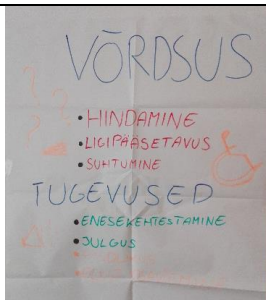 VÕRDSUS
• HINDAMINE
• LIGIPÄÄSETAVUS
• SUHTUMINE
TUGEVUSED
• ENESEKEHTESTAMINE
• JULGUS